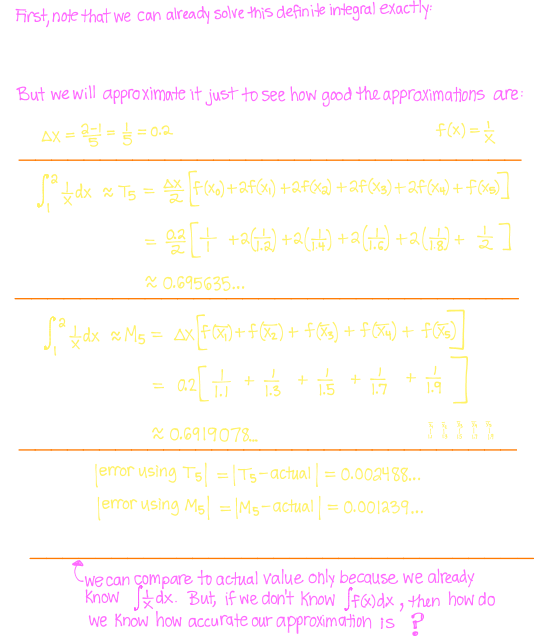 First, note that we can already solve this definite integral exactly:
But we will approximate it just to see how good the approximations are:
Δx = (2-1)/5 = 1/5 = 0.2 f(x) = 1/x
∫₁² 1/x dx ≈ T₅ = Δx/2 [f(x₀) + 2f(x₁) + 2f(x₂) + 2f(x₃) + 2f(x₄) + f(x₅)]
= 0.2/2 [1/1 + 2(1/1.2) + 2(1/1.4) + 2(1/1.6) + 2(1/1.8) + 1/2]
≈ 0.695635...
∫₁² 1/x dx ≈ M₅ = Δx [f(x̅₁) + f(x̅₂) + f(x̅₃) + f(x̅₄) + f(x̅₅)]
= 0.2 [1/1.1 + 1/1.3 + 1/1.5 + 1/1.7 + 1/1.9]
≈ 0.6919078...
|error using T₅| = |T₅ - actual| = 0.002488...
|error using M₅| = |M₅ - actual| = 0.001239...
we can compare to actual value only because we already
know ∫ 1/x dx. But, if we don't know ∫f(x)dx, then how do
we know how accurate our approximation is ?